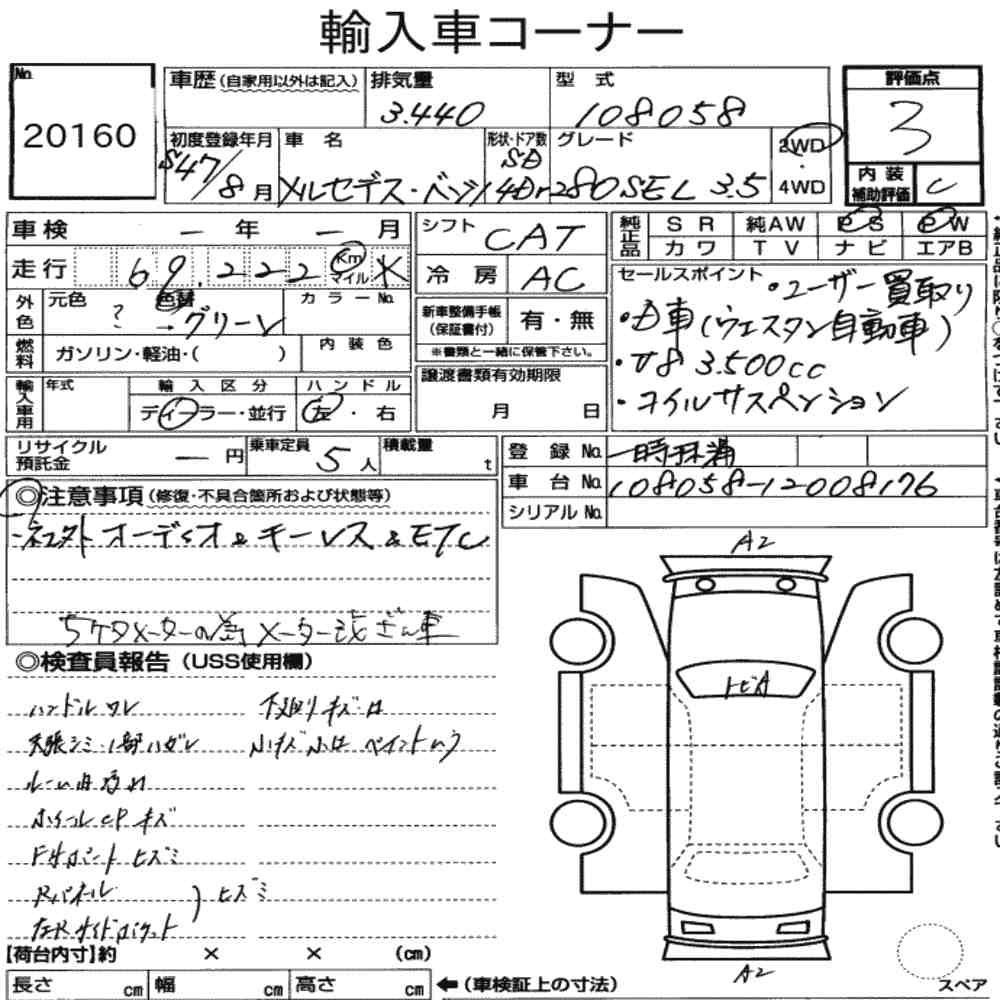 輸入車コーナー
No. 20160
車歴 (自家用以外は記入) 排気量 3.440 型式 108058
評価点 3
初度登録年月 S47/8月 車名 メルセデス・ベンツ 形状・ドア数 SD 4Dr グレード 280SEL 3.5 2WD・4WD
内装補助評価 C
車検 ー年 ー月 シフト CAT 純正品 SR 純AW PS PW
走行 69.222 Km マイル X 冷房 AC カワ TV ナビ エアB
外色 元色 ? 色替 →グリーン カラーNo. 新車整備手帳(保証書付) 有・無
※書類と一緒に保管下さい。
セールスポイント ・ユーザー買取り
・D車(ウエスタン自動車)
・V8 3.500cc
・コイルサスペンション
燃料 ガソリン・軽油・( ) 内装色
譲渡書類有効期限 月 日
輸入車用 年式 輸入区分 ディーラー・並行 ハンドル 左・右
リサイクル預託金 ー円 乗車定員 5人 積載量 t
登録No. 一時抹消
車台No. 108058-12008176
シリアルNo.
◎注意事項(修復・不具合箇所および状態等)
オーディオ & キーレス & ETC
5ケタメーターの為 メーター改ざん車
◎検査員報告(USS使用欄)
ハンドルワレ 下廻りキズ凹
天張シミ・1部ハガレ 小キズ小凹 ペイントムラ
ルーム内
ホイールCPキズ
ヒズミ
Rパネル ヒズミ
A2
トビA
A2
【荷台内寸】約 × × (cm)
長さ cm 幅 cm 高さ cm ←(車検証上の寸法)
スペア